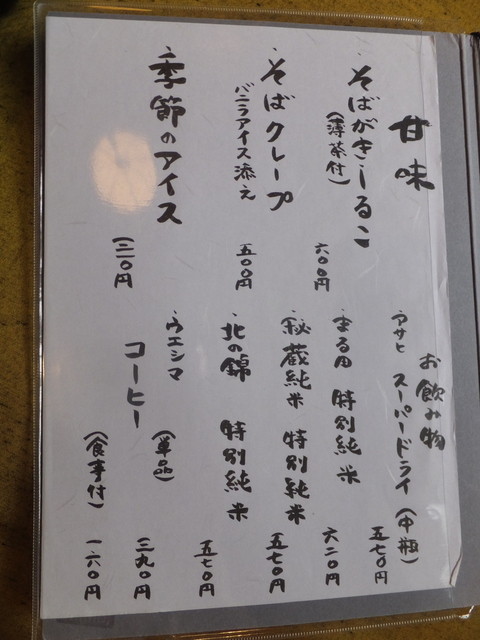 甘味
・そばがきしるこ
(薄茶付)
六〇〇円
・そばクレープ
バニラアイス添え
五〇〇円
・季節のアイス
(三二〇円
お飲み物
・アサヒ スーパードライ (中瓶)
五七〇円
・まる田 特別純米
六二〇円
・秘蔵純米 特別純米
五七〇円
・北の錦 特別純米
五七〇円
・ウエシマ
コーヒー
(単品)
三九〇円
(食事付)
一六〇円